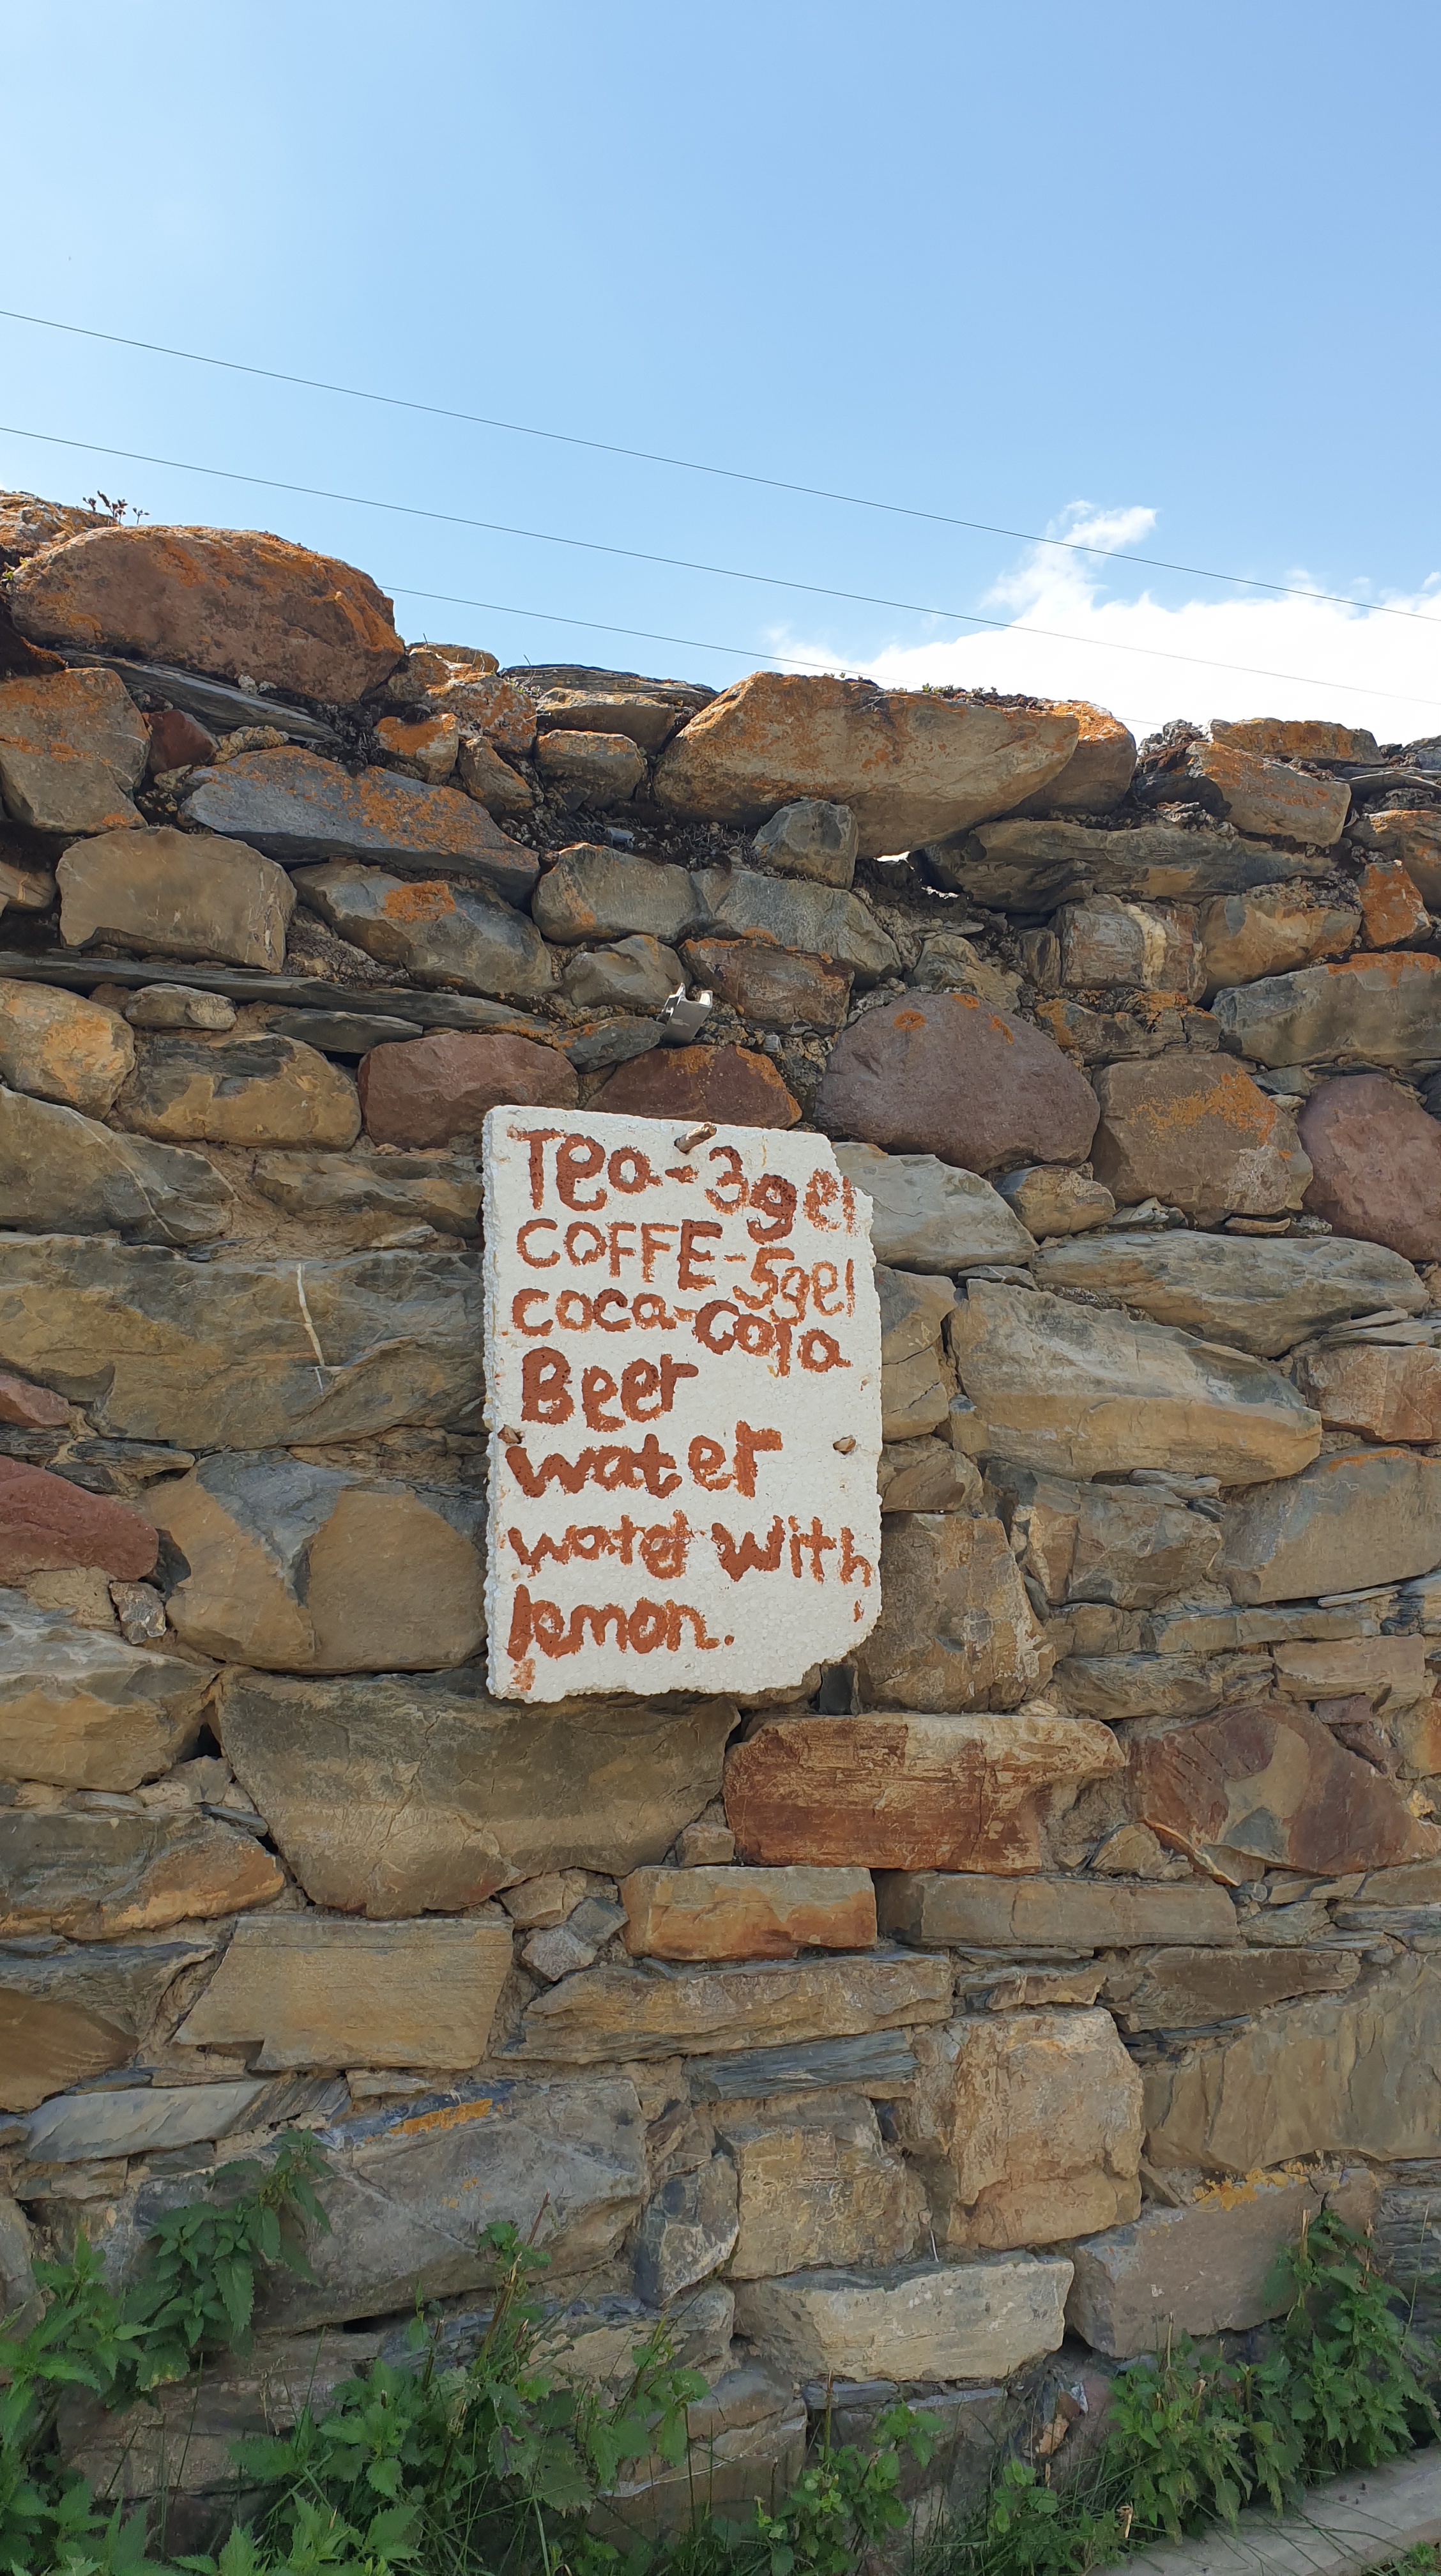 Tea-3gel
COFFE-5gel
coca-cola
Beer
water
water with
lemon.